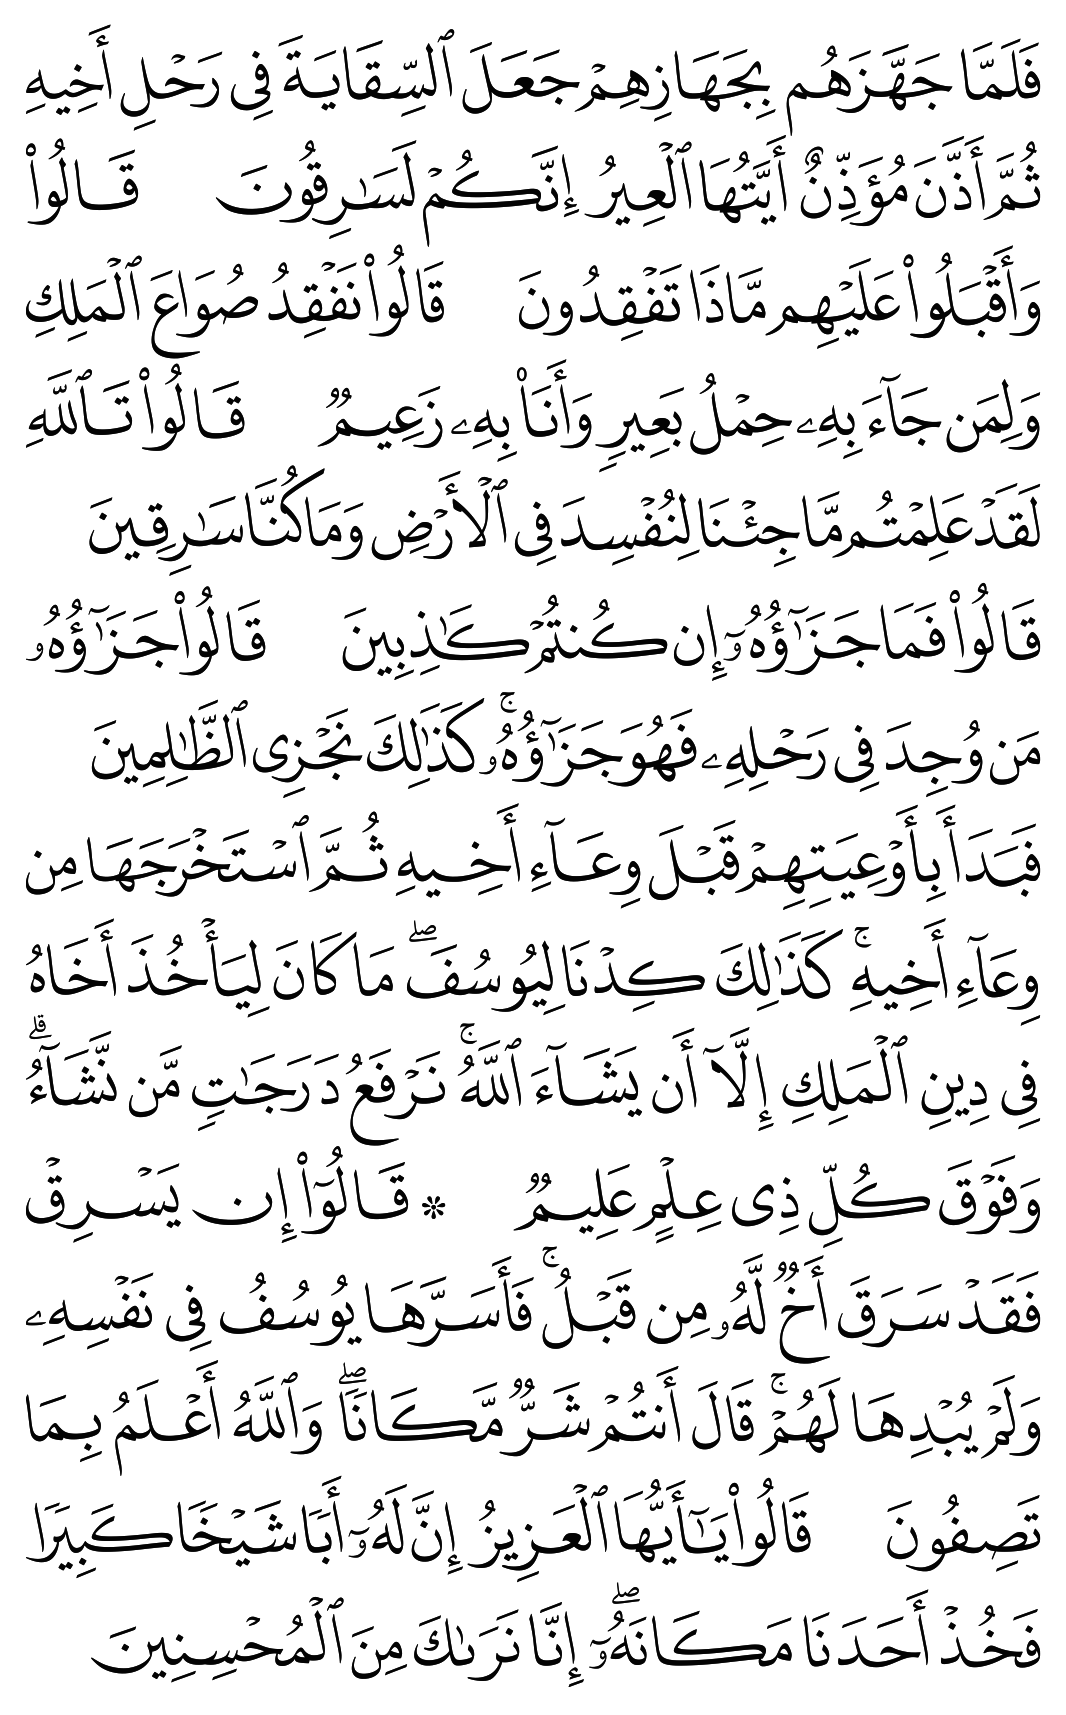 فَلَمَّا جَهَّزَهُم بِجَهَازِهِمۡ جَعَلَ ٱلسِّقَايَةَ فِي رَحۡلِ أَخِيهِ
ثُمَّ أَذَّنَ مُؤَذِّنٌ أَيَّتُهَا ٱلۡعِيرُ إِنَّكُمۡ لَسَٰرِقُونَ قَالُواْ
وَأَقۡبَلُواْ عَلَيۡهِم مَّاذَا تَفۡقِدُونَ قَالُواْ نَفۡقِدُ صُوَاعَ ٱلۡمَلِكِ
وَلِمَن جَآءَ بِهِۦ حِمۡلُ بَعِيرٖ وَأَنَا۠ بِهِۦ زَعِيمٞ قَالُواْ تَٱللَّهِ
لَقَدۡ عَلِمۡتُم مَّا جِئۡنَا لِنُفۡسِدَ فِي ٱلۡأَرۡضِ وَمَا كُنَّا سَٰرِقِينَ
قَالُواْ فَمَا جَزَٰٓؤُهُۥٓ إِن كُنتُمۡ كَٰذِبِينَ قَالُواْ جَزَٰٓؤُهُۥ
مَن وُجِدَ فِي رَحۡلِهِۦ فَهُوَ جَزَٰٓؤُهُۥۚ كَذَٰلِكَ نَجۡزِي ٱلظَّٰلِمِينَ
فَبَدَأَ بِأَوۡعِيَتِهِمۡ قَبۡلَ وِعَآءِ أَخِيهِ ثُمَّ ٱسۡتَخۡرَجَهَا مِن
وِعَآءِ أَخِيهِۚ كَذَٰلِكَ كِدۡنَا لِيُوسُفَۖ مَا كَانَ لِيَأۡخُذَ أَخَاهُ
فِي دِينِ ٱلۡمَلِكِ إِلَّآ أَن يَشَآءَ ٱللَّهُۚ نَرۡفَعُ دَرَجَٰتٖ مَّن نَّشَآءُۗ
وَفَوۡقَ كُلِّ ذِي عِلۡمٍ عَلِيمٞ ۞ قَالُوٓاْ إِن يَسۡرِقۡ
فَقَدۡ سَرَقَ أَخٞ لَّهُۥ مِن قَبۡلُۚ فَأَسَرَّهَا يُوسُفُ فِي نَفۡسِهِۦ
وَلَمۡ يُبۡدِهَا لَهُمۡۚ قَالَ أَنتُمۡ شَرّٞ مَّكَانٗاۖ وَٱللَّهُ أَعۡلَمُ بِمَا
تَصِفُونَ قَالُواْ يَٰٓأَيُّهَا ٱلۡعَزِيزُ إِنَّ لَهُۥٓ أَبٗا شَيۡخٗا كَبِيرٗا
فَخُذۡ أَحَدَنَا مَكَانَهُۥٓۖ إِنَّا نَرَىٰكَ مِنَ ٱلۡمُحۡسِنِينَ